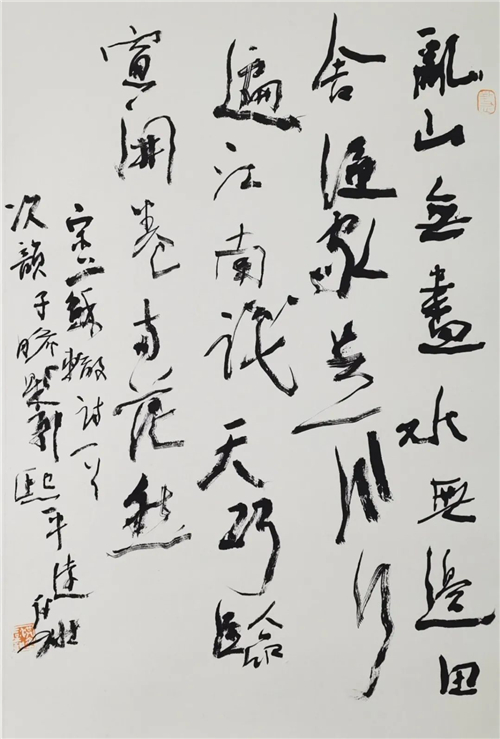 亂山無盡水無邊田
舍漁家共一川行
遍江南識天巧臨
窗開卷兩茫然
宋蘇轍詩一首
次韻子瞻題郭熙平遠